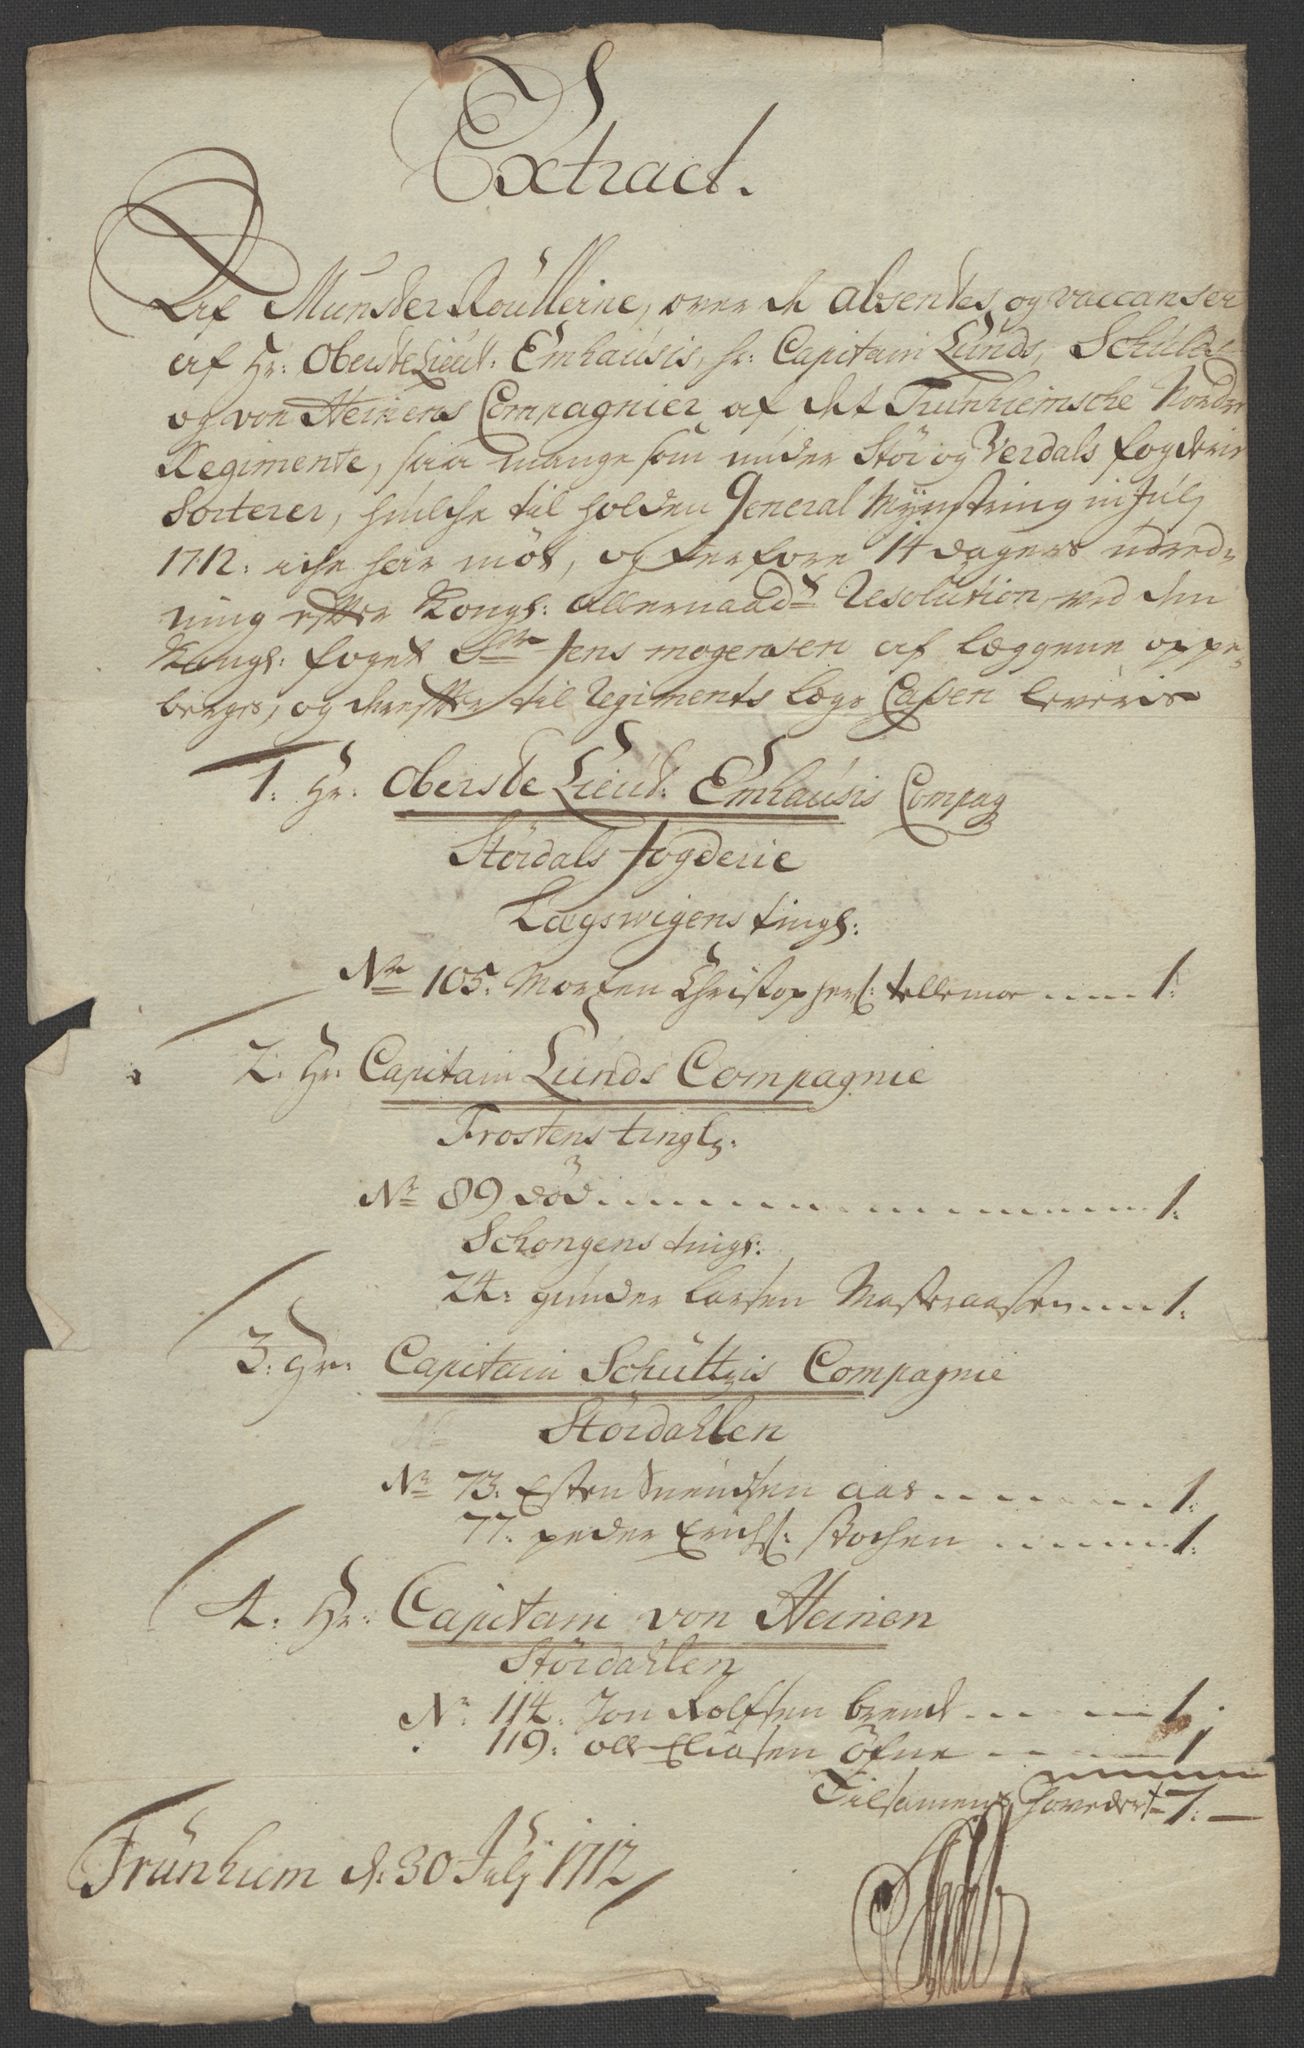 Extract.
Af Munster Roullerne, over de absentes og vaccanser
af Hr: Oberste Lieut: Emhausis, hr: Capitain Lunds, Schultz
og von Heinens Compagnier af det Trunhiemsche Norder
Regimente, saa mange som under Stör og Verdals fogderie
Sorterer, huilche til holden General Mynstring in Julj
1712: iche har möt, og derfore 14 dagers udred-
ning efter Kongl: allernaadste Resolution, ved den
Kongl: foget Sr Jens mogensen af læggene oppe-
berges, og derefter til Regiments lægs Cassen leveris
1. Hr: Oberste Lieut: Emhausis Compag
Stördals fogderie
Lægswigens tingl:
No 105. Morten Christophers: tellemoe ..... 1:
2. Hr: Capitain Lunds Compagnie
Frostens tingl:
Nr 89 död ..... 1:
Schongens tingl:
24: gunder larsen Masteraasen ..... 1:
3. Hr: Capitain Schultzis Compagnie
Stördahlen
Nr 73. Esten Suendsen aas ..... 1:
77: peder Erichs: Kochen ..... 1:
4. Hr: Capitain von Heinen
Stördahlen
Nr 114. Jon Rolfsen brend ..... 1.
119: olle Eliasen öfne ..... 1
Tilsamens hoveder 7:
Trunhiem d: 30 Julj 1712